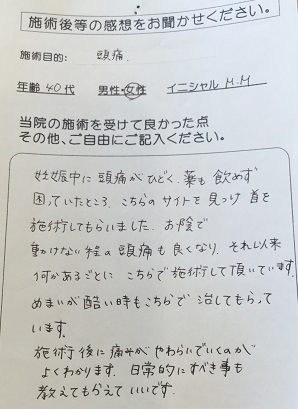 施術後等の感想をお聞かせください。
施術目的: 頭痛.
年齢 40代 男性・女性 イニシャル M.M
当院の施術を受けて良かった点
その他、ご自由にご記入ください。
妊娠中に頭痛がひどく、薬も飲めず
困っていたところ、こちらのサイトを見つけ首を
施術してもらいました。お陰で
動けない程の頭痛も良くなり、それ以来
何かあるごとに こちらで施術して頂いています。
めまいが酷い時もこちらで治してもらって
います。
施術後に痛みがやわらいでいくのが
よくわかります。日常的にすべき事も
教えてもらえていいです。